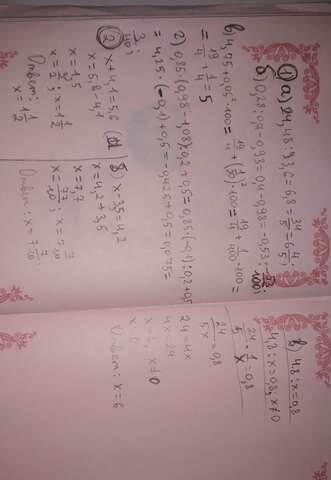 ① а) 24,48 : 3,6 = 6,8 = 34/5 = 6 4/5;
б) 0,28 : 0,7 - 0,93 = 0,4 - 0,93 = -0,53 = -53/100;
в) 4,75 + 0,05² · 100 = 19/4 + (1/20)² · 100 = 19/4 + 1/400 · 100 =
= 19/4 + 1/4 = 5
г) 0,85 · (0,98 - 1,08) : 0,2 + 0,5 = 0,85 · (-0,1) : 0,2 + 0,5
3/40;
② x + 4,1 = 5,6
x = 5,6 - 4,1
x = 1,5
x = 3/2; x = 1 1/2
Ответ: x = 1 1/2
б) x - 3,5 = 4,2
x = 4,2 + 3,5
x = 7,7
x = 77/10; x = 7 7/10
Ответ: x = 7 7/10;
в) 4,8 : x = 0,8
4,8 : x = 0,8, x ≠ 0
24/5 · 1/x = 0,8
24/5x = 0,8
24 = 4x
4x = 24
x = 6, x ≠ 0
x = 6
Ответ: x = 6